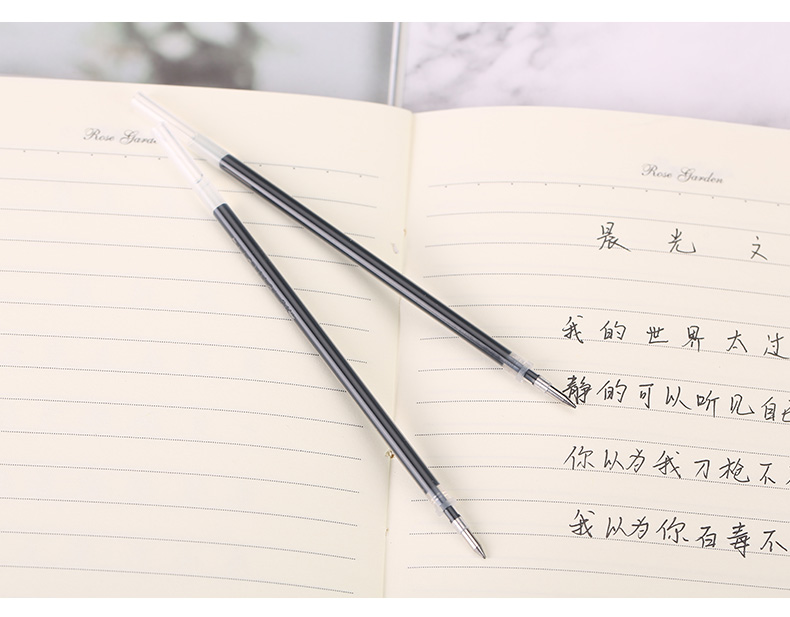 Rose Garden
Rose Garden
晨光文
我的世界太过
静的可以听见自己
你以为我刀枪不
我以为你百毒不